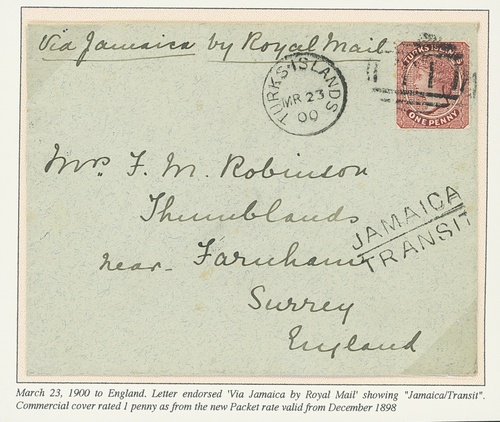 Via Jamaica by Royal Mail
TURKS ISLANDS
MR 23
00
TURKS ISLANDS
ONE PENNY
Mrs. F. M. Robinson
Thumblands
near Farnham
Surrey
England
JAMAICA
TRANSIT
March 23, 1900 to England. Letter endorsed 'Via Jamaica by Royal Mail' showing "Jamaica/Transit".
Commercial cover rated 1 penny as from the new Packet rate valid from December 1898